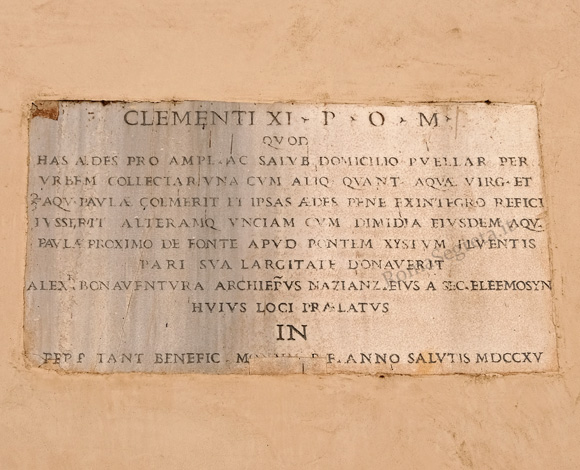 CLEMENTI XI · P · O · M ·
QVOD
HAS ÆDES PRO AMPL· AC SALVB· DOMICILIO PVELLAR· PER
VRBEM COLLECTAR· VNA CVM ALIQ· QVANT· AQVÆ VIRG· ET
AQV· PAVLÆ COEMERIT ET IPSAS ÆDES PENE EX INTEGRO REFICI
IVSSERIT ALTERAMQ· VNCIAM CVM DIMIDIA EIVSDEM AQV·
PAVLÆ PROXIMO DE FONTE APVD PONTEM XYSTVM FLVENTIS
PARI SVA LARGITATE DONAVERIT
ALEX· BONAVENTVRA ARCHIEPVS NAZIANZ· EIVS A SEC· ELEEMOSYN
HVIVS LOCI PRÆLATVS
IN
TANT· BENEFIC· ANNO SALVTIS MDCCXV